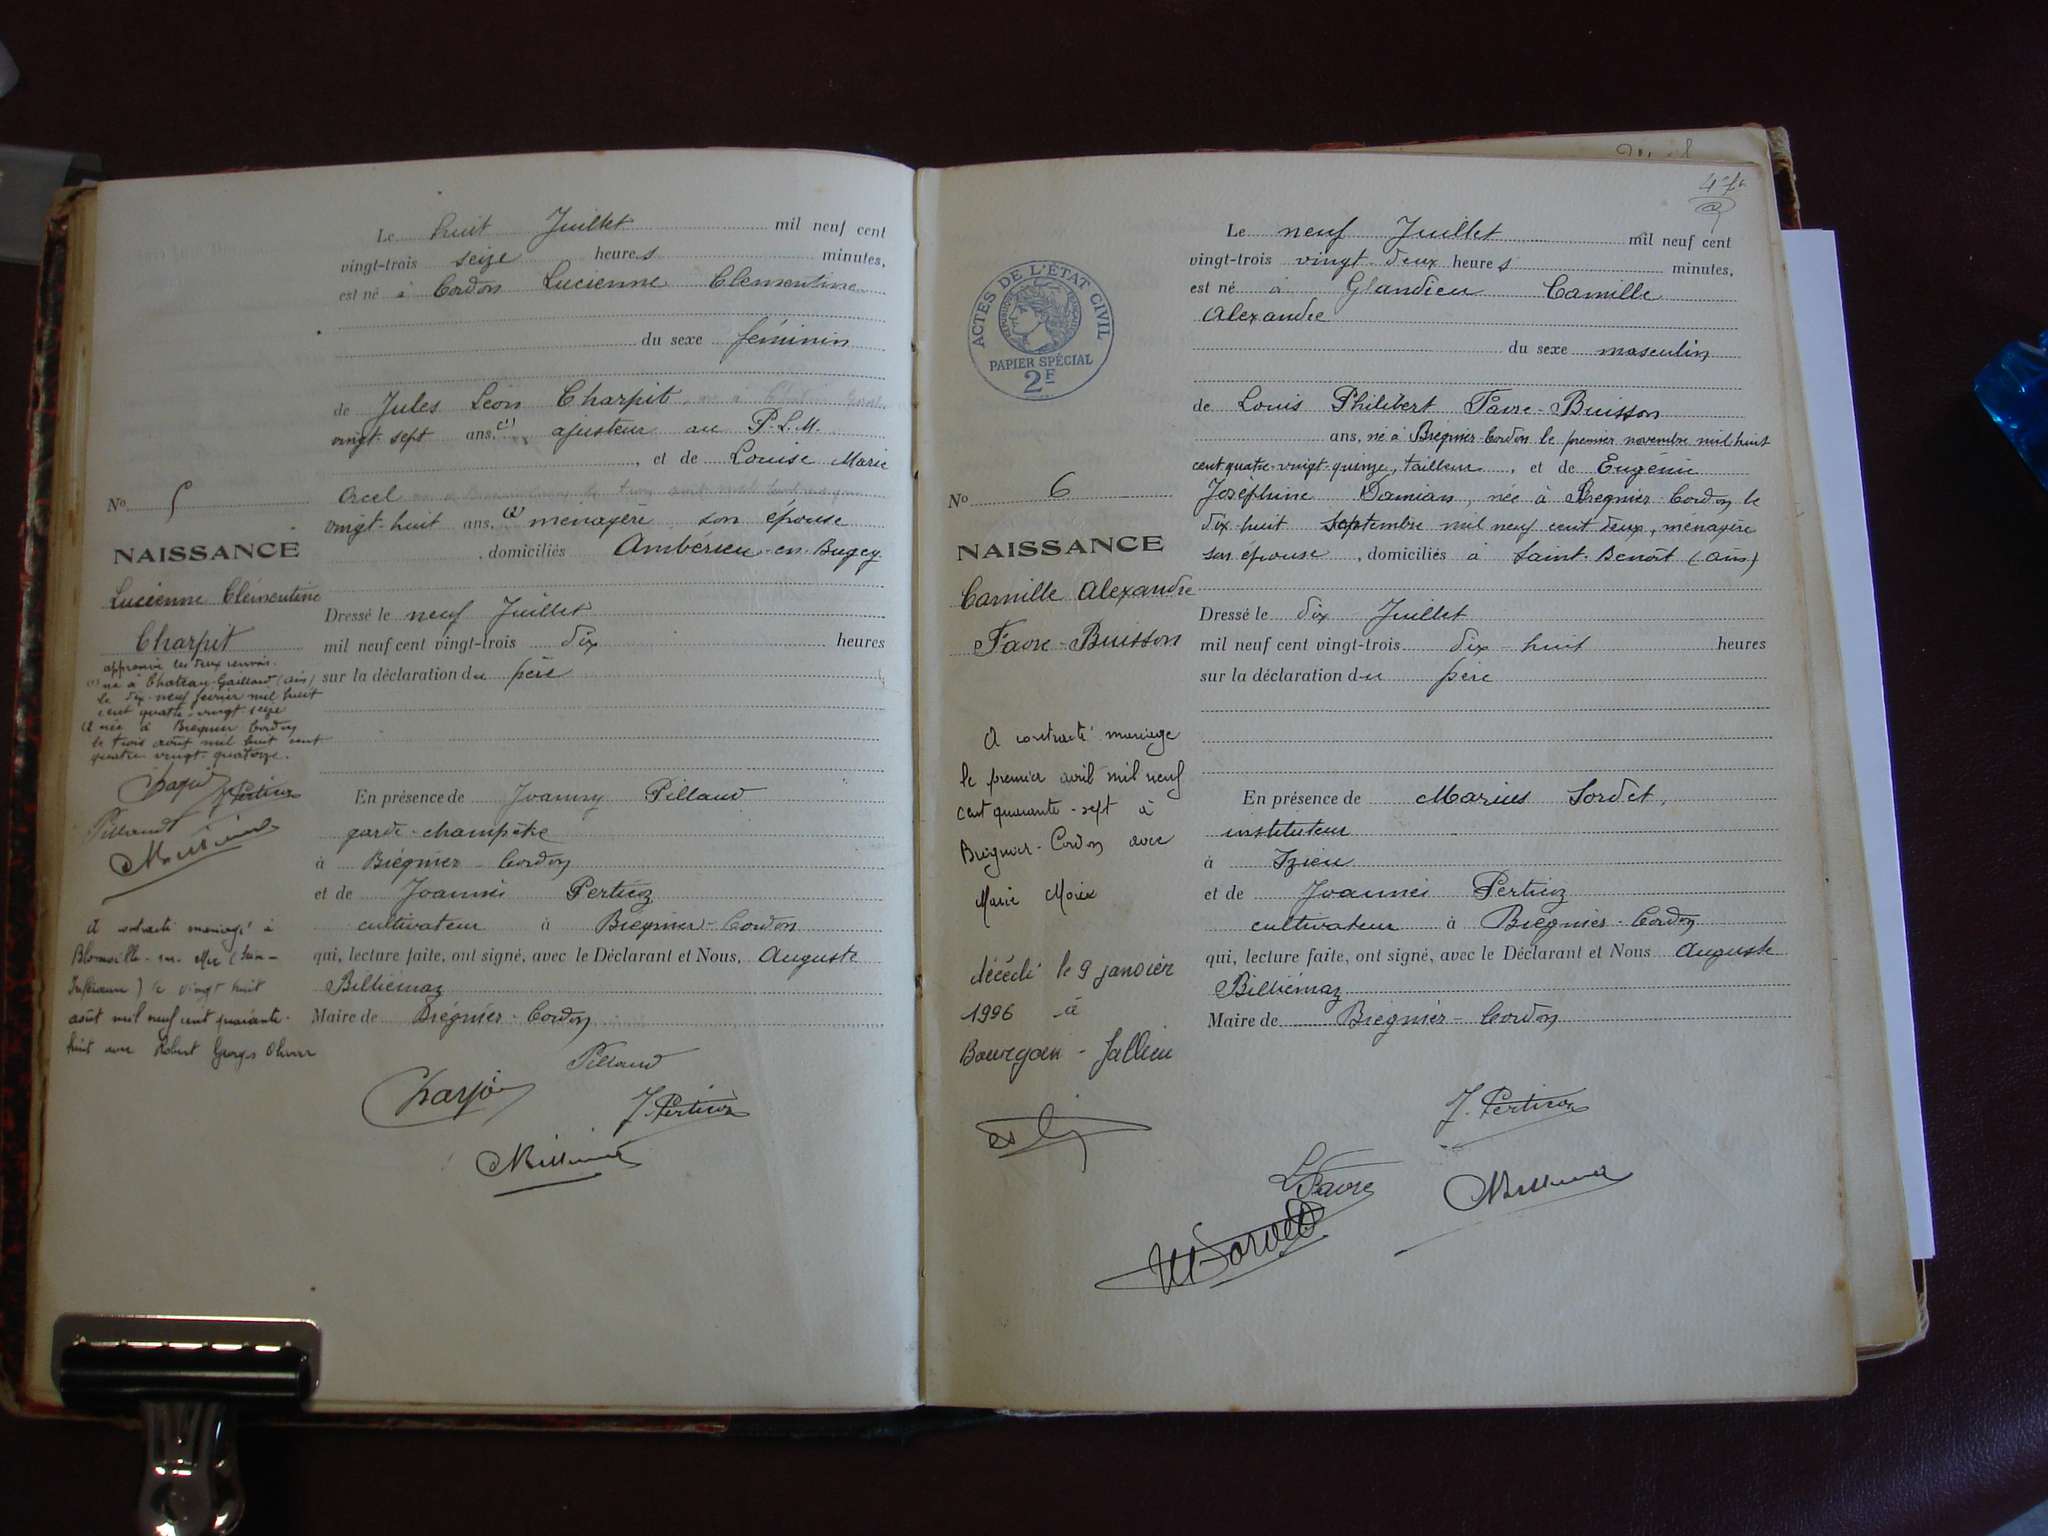 Le huit Juillet mil neuf cent
vingt-trois seize heures minutes,
est né à Cordon Lucienne Clementine
du sexe féminin
de Jules Léon Charpit
vingt-sept ans, (1) ajusteur au P.L.M.
, et de Louise Marie
Orcel
vingt-huit ans, (2) ménagère, son épouse
, domiciliés Ambérieu-en-Bugey
Dressé le neuf Juillet
mil neuf cent vingt-trois dix heures
sur la déclaration du père
En présence de Joanny Pillaud
garde-champêtre
à Brégnier-Cordon
et de Joannès Perticoz
cultivateur à Brégnier-Cordon
qui, lecture faite, ont signé, avec le Déclarant et Nous, Auguste
Billiémaz
Maire de Brégnier-Cordon
Pillaud
J. Perticoz
No 5
NAISSANCE
Lucienne Clémentine
Charpit
approuvé les deux renvois.
(1) né à Chateau-Gaillard (Ain)
le dix-neuf février mil huit
cent quatre-vingt-seize
(2) née à Brégnier Cordon
le trois août mil huit cent
quatre-vingt-quatorze.
J. Perticoz
Pillaud
A contracté mariage à
Blonville-sur-Mer (Seine-
Inférieure) le vingt huit
août mil neuf cent quarante-
huit avec Robert Georges
Le neuf Juillet mil neuf cent
vingt-trois vingt-deux heures minutes,
est né à Glandieu Camille
Alexandre
du sexe masculin
de Louis Philibert Favre-Buisson
ans, né à Brégnier-Cordon le premier novembre mil huit
cent quatre-vingt-quinze, tailleur, et de Eugénie
Joséphine Damian, née à Brégnier-Cordon le
dix-huit septembre mil neuf cent deux, ménagère
son épouse, domiciliés à Saint-Benoît (Ain)
Dressé le dix Juillet
mil neuf cent vingt-trois dix-huit heures
sur la déclaration du père
En présence de Marius Sordet,
instituteur
à Izieu
et de Joannès Perticoz
cultivateur à Brégnier-Cordon
qui, lecture faite, ont signé, avec le Déclarant et Nous Auguste
Billiémaz
Maire de Brégnier-Cordon
J. Perticoz
L. Favre
M Sordet
ACTES DE L'ÉTAT CIVIL
PAPIER SPÉCIAL
2F
No 6
NAISSANCE
Camille Alexandre
Favre-Buisson
A contracté mariage
le premier avril mil neuf
cent quarante-sept à
Brégnier-Cordon avec
Marie Moiex
décédé le 9 janvier
1996 à
Bourgoin-Jallieu